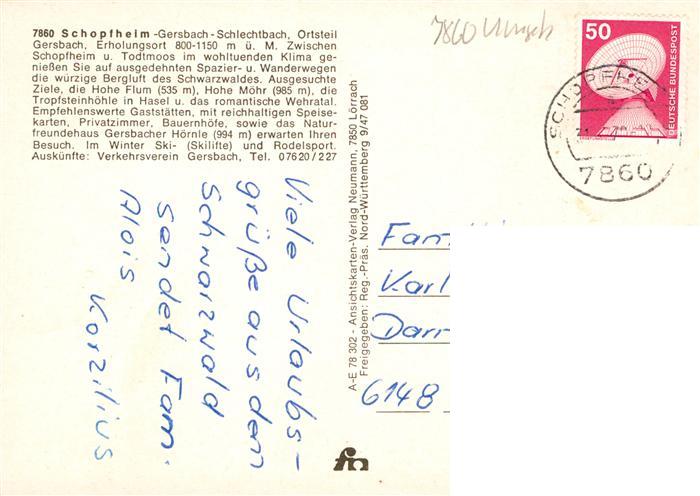 7860 Schopfheim -Gersbach-Schlechtbach, Ortsteil
Gersbach, Erholungsort 800-1150 m ü. M. Zwischen
Schopfheim u. Todtmoos im wohltuenden Klima ge-
nießen Sie auf ausgedehnten Spazier- u. Wanderwegen
die würzige Bergluft des Schwarzwaldes. Ausgesuchte
Ziele, die Hohe Flum (535 m), Hohe Möhr (985 m), die
Tropfsteinhöhle in Hasel u. das romantische Wehratal.
Empfehlenswerte Gaststätten, mit reichhaltigen Speise-
karten, Privatzimmer, Bauernhöfe, sowie das Natur-
freundehaus Gersbacher Hörnle (994 m) erwarten Ihren
Besuch. Im Winter Ski- (Skilifte) und Rodelsport.
Auskünfte: Verkehrsverein Gersbach, Tel. 07620/227
Viele Urlaubs-
grüße aus dem
Schwarzwald
sendet Fam.
Alois Korzilius
A-E 78 302 - Ansichtskarten-Verlag Neumann, 7850 Lörrach
Freigegeben: Reg.-Präs. Nord-Württemberg 9/47 081
7860
50
DEUTSCHE BUNDESPOST
SCHOPFHE
7860
Fam
Karl
Darr
6148
fm